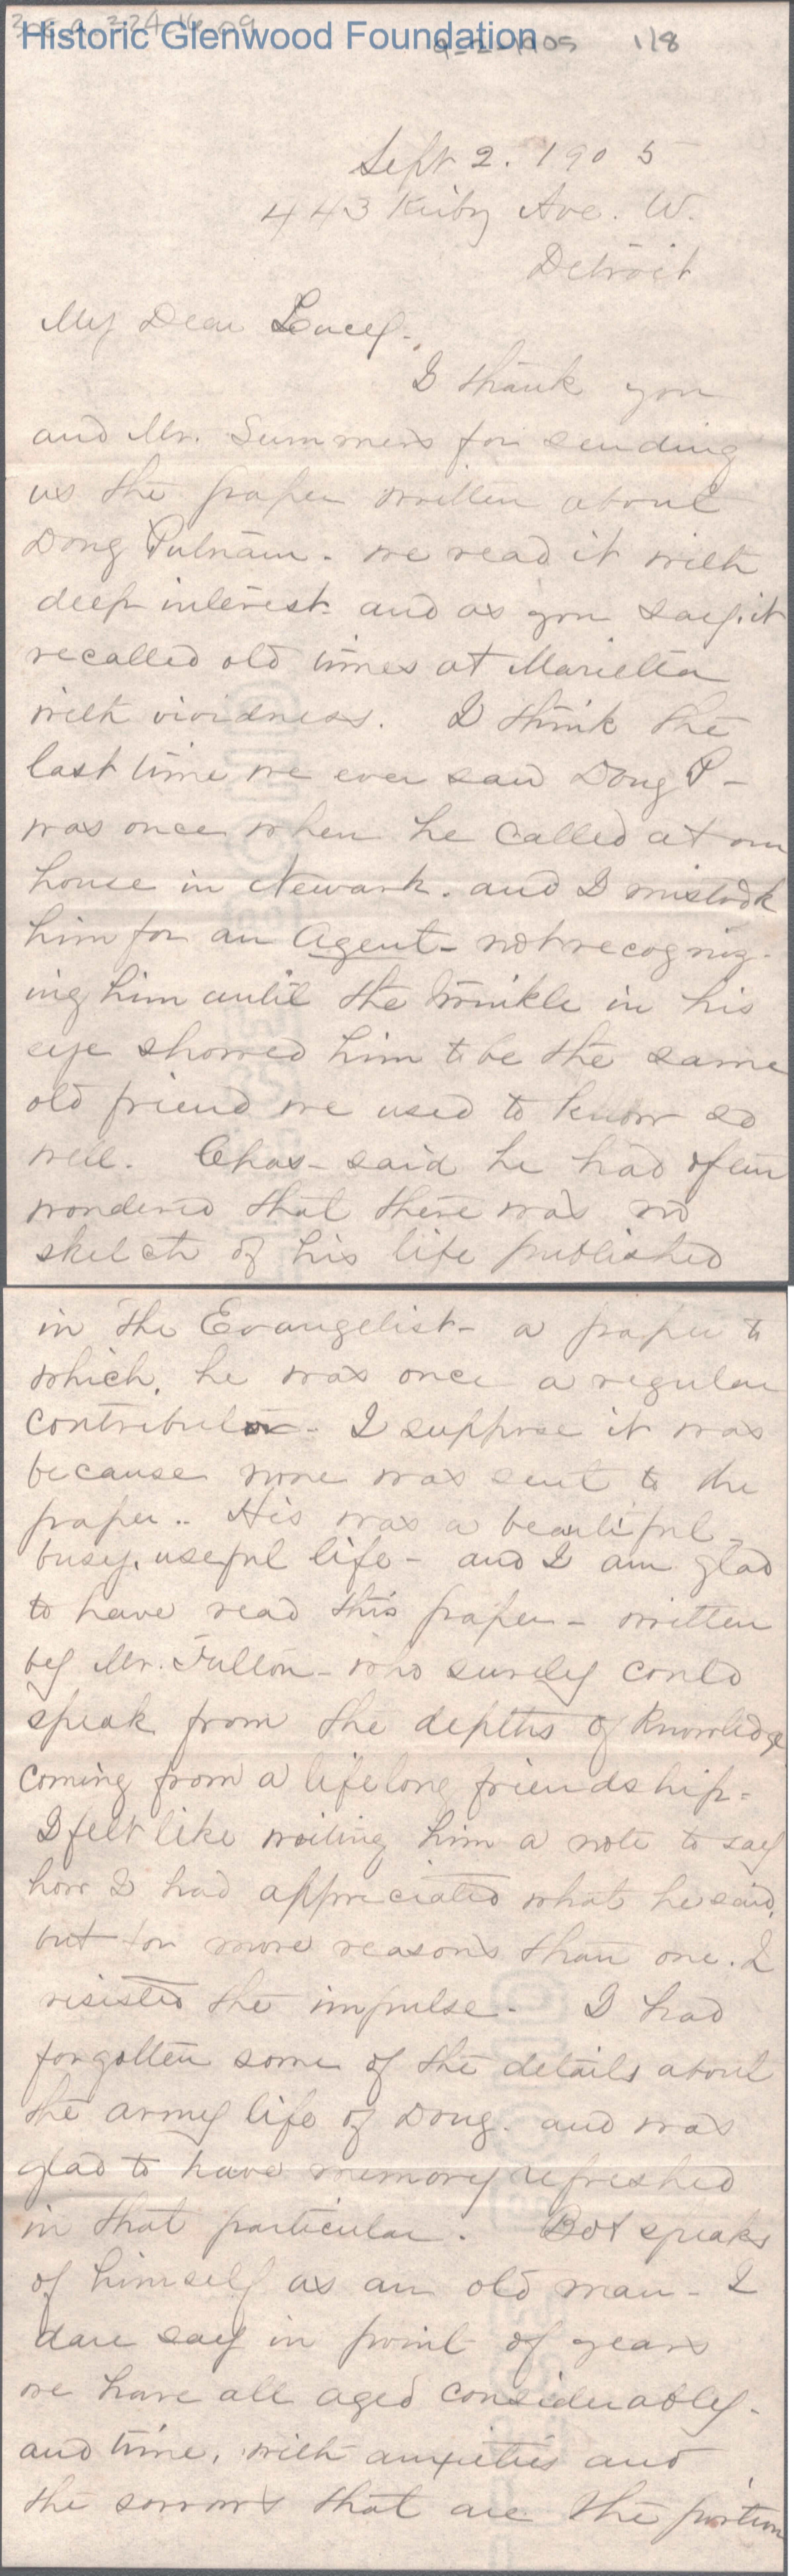 Historic Glenwood Foundation
9-2-1905 1/8
Sept 2. 1905
443 Kirby Ave. W.
Detroit
My Dear Lucy-
I thank you
and Mr. Summers for sending
us the paper written about
Doug Putnam. we read it with
deep interest- and as you say, it
recalled old times at Marietta
with vividness. I think the
last time we ever saw Doug P-
was once when he called at our
house in Newark. and I mistook
him for an Agent- not recogniz-
ing him until the twinkle in his
eye showed him to be the same
old friend we used to know so
well. Chas- said he had often
wondered that there was no
sketch of his life published
in The Evangelist- a paper to
which, he was once a regular
contributor- I suppose it was
because none was sent to the
paper.. His was a beautiful-
busy, useful life- and I am glad
to have read this paper- written
by Mr. Fulton- who surely could
speak from the depths of knowledge
coming from a lifelong friendship-
I felt like writing him a note to say
how I had appreciated what he said,
but for more reasons than one. I
resisted the impulse. I had
forgotten some of the details about
the army life of Doug. and was
glad to have memory refreshed
in that particular. speaks
of himself as an old man- I
dare say in point of years
we have all aged considerably.
and time, with anxieties and
the sorrows that are the portion